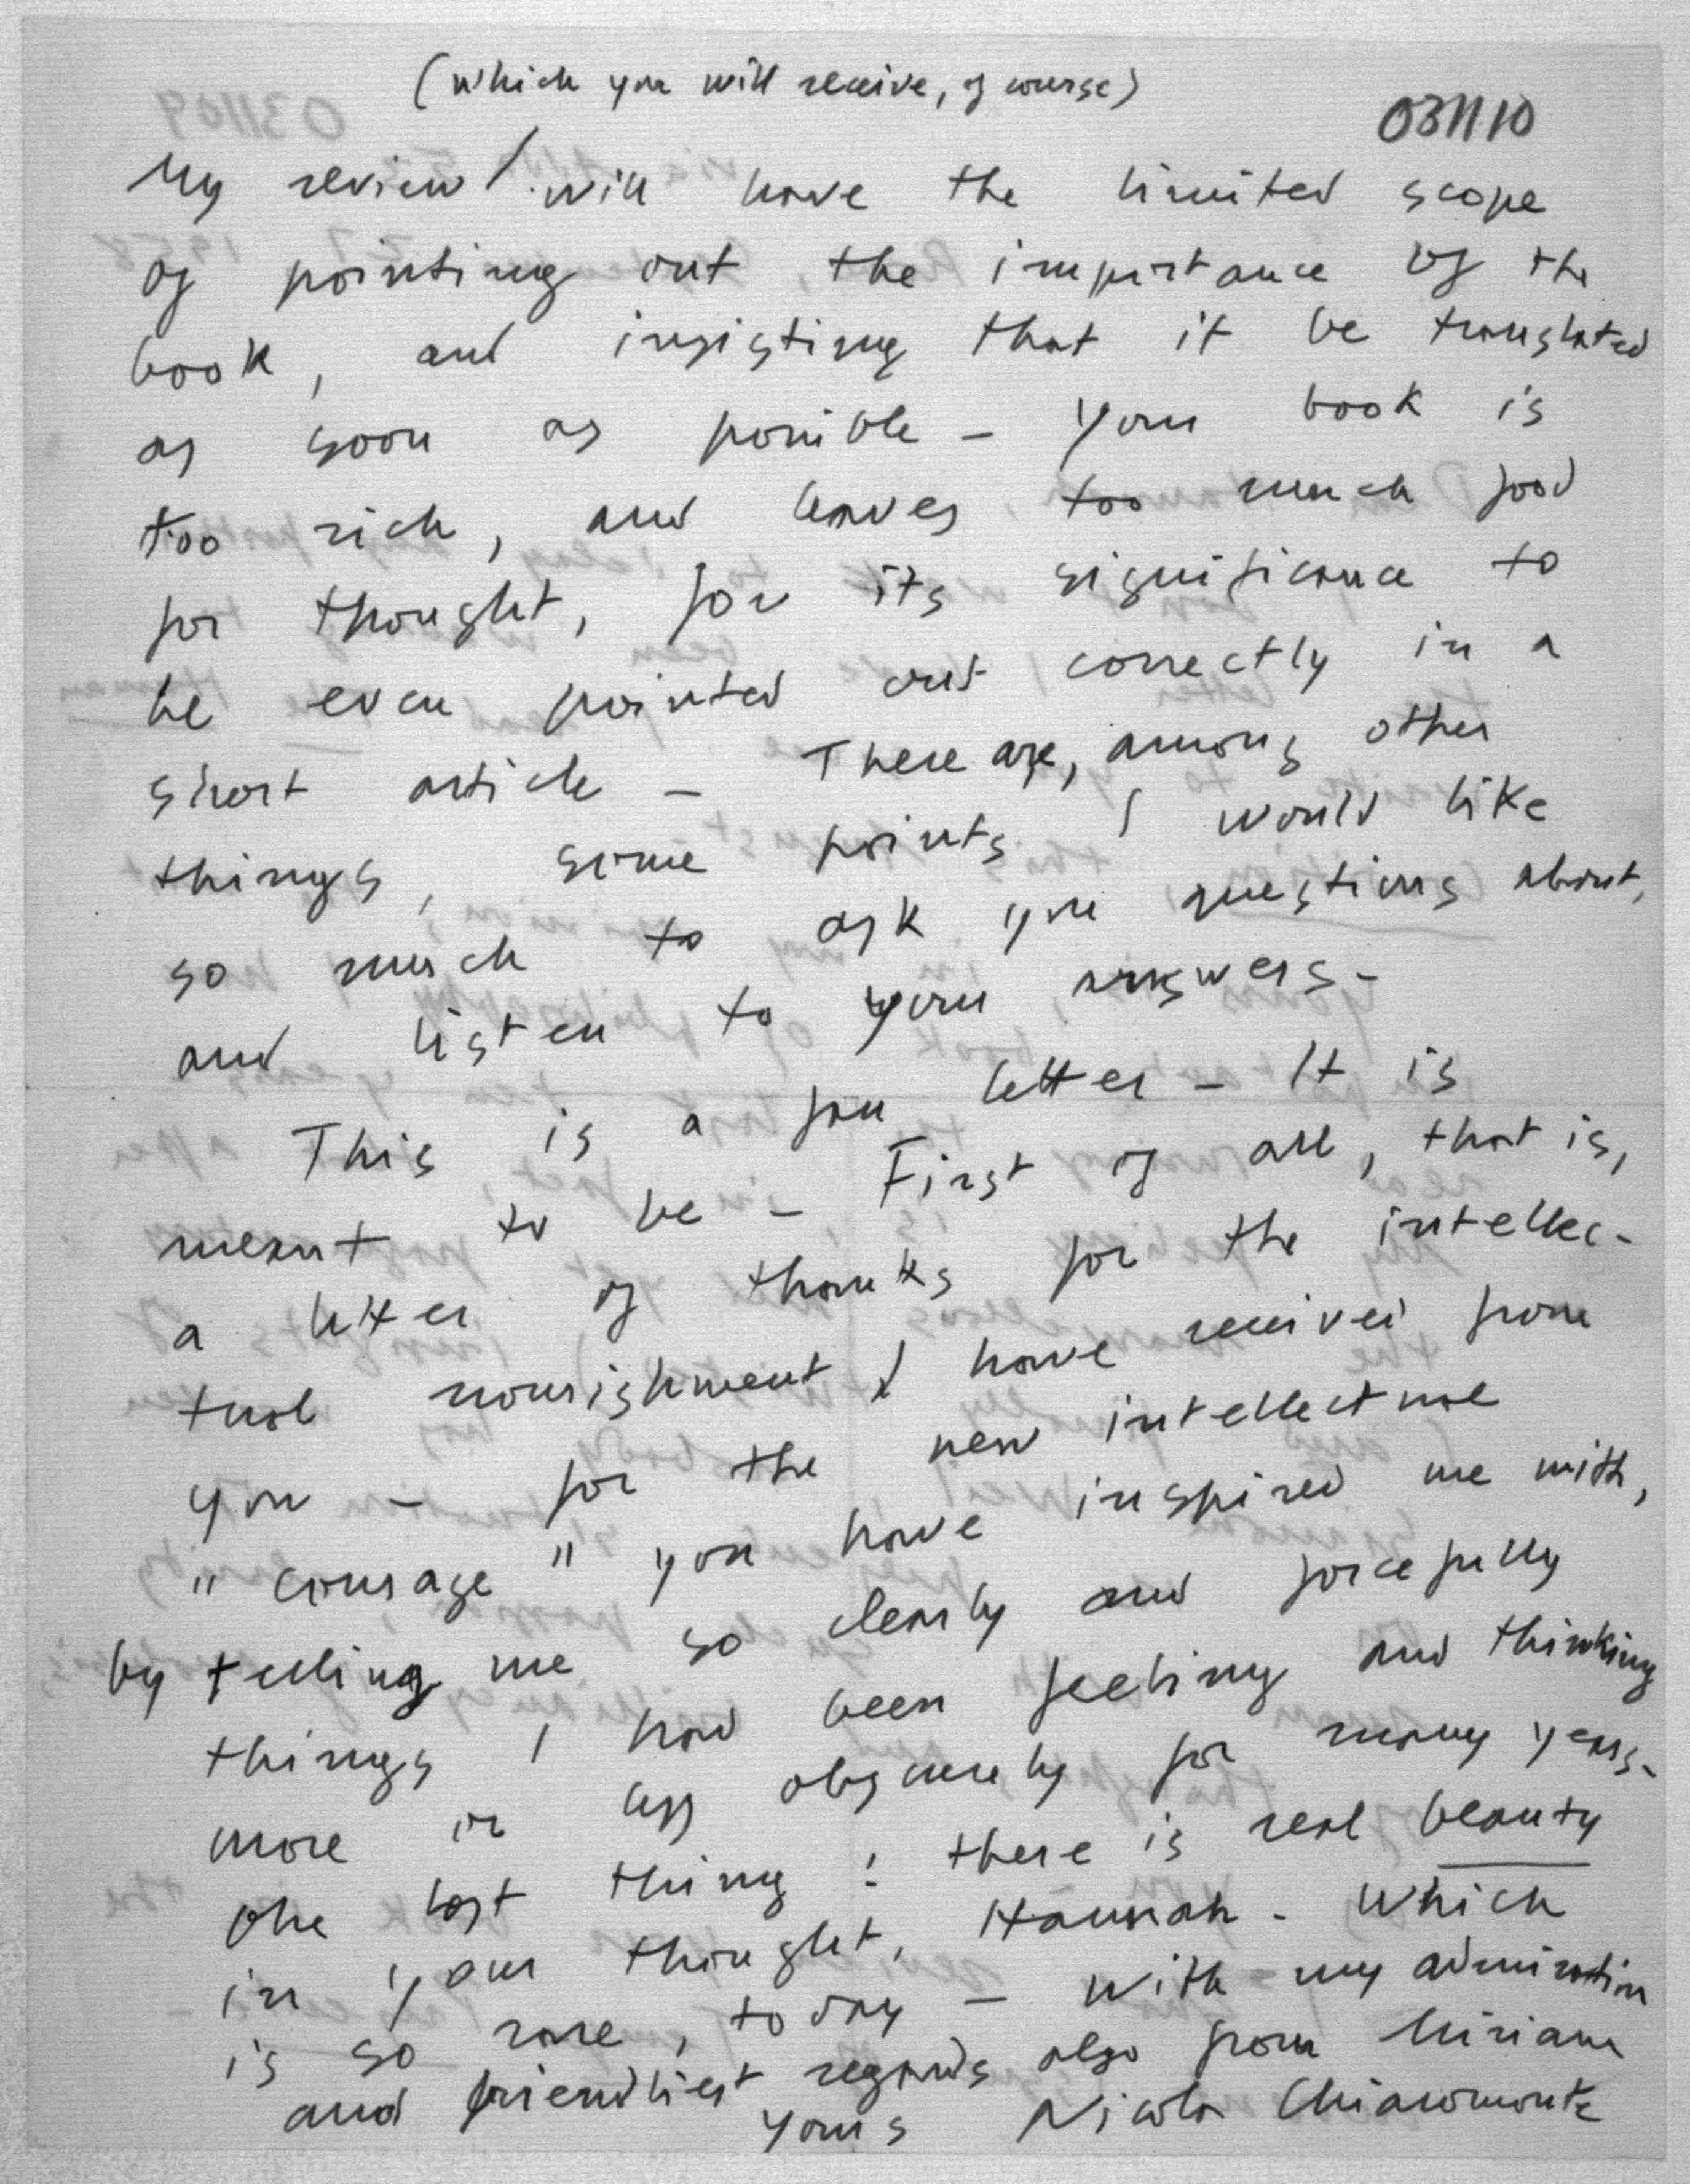 (which you will receive, of course)
031110
My review / will have the limited scope
of pointing out the importance of the
book, and insisting that it be translated
as soon as possible – Your book is
too rich, and leaves too much food
for thought, for its significance to
be even pointed out correctly in a
short article – There are, among other
things, some points I would like
so much to ask you questions about,
and listen to your answers –
This is a fan letter – It is
meant to be – First of all, that is,
a letter of thanks for the intellec-
tual nourishment I have received from
you – for the new intellectual
"courage" you have inspired me with,
by telling me so clearly and forcefully
things I had been feeling and thinking
more or less obscurely for many years –
One last thing: there is real beauty
in your thought, Hannah – Which
is so rare, today – With my admiration
and friendliest regards also from Miriam
Yours Nicola Chiaromonte